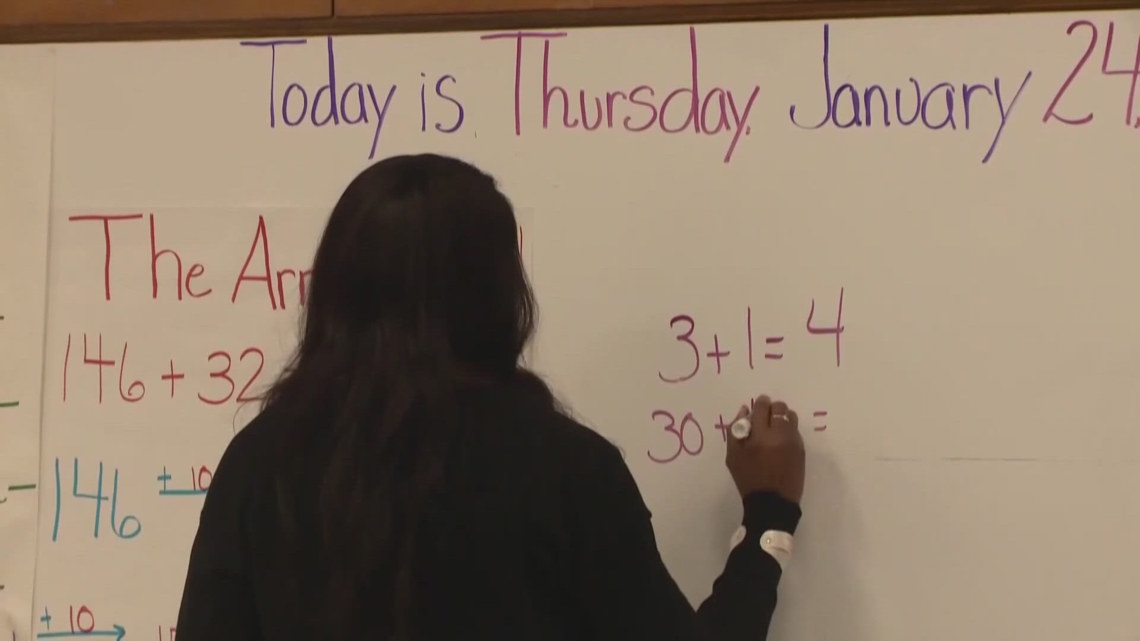 Today is Thursday, January 24,
The Arr
146 + 32
146 + 10
+ 10
3+1= 4
30+ =